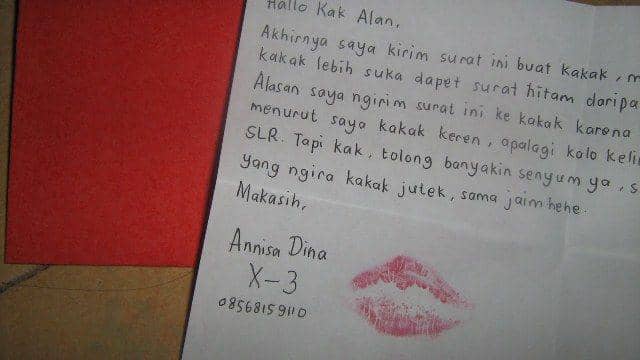 Hallo Kak Alan,
Akhirnya saya kirim surat ini buat kakak,
kakak lebih suka dapet surat hitam daripa
Alasan saya ngirim surat ini ke kakak karena
menurut saya kakak keren, apalagi kalo
SLR. Tapi kak, tolong banyakin senyum ya,
yang ngira kakak jutek, sama jaim hehe.
Makasih,
Annisa Dina
X-3
08568159110